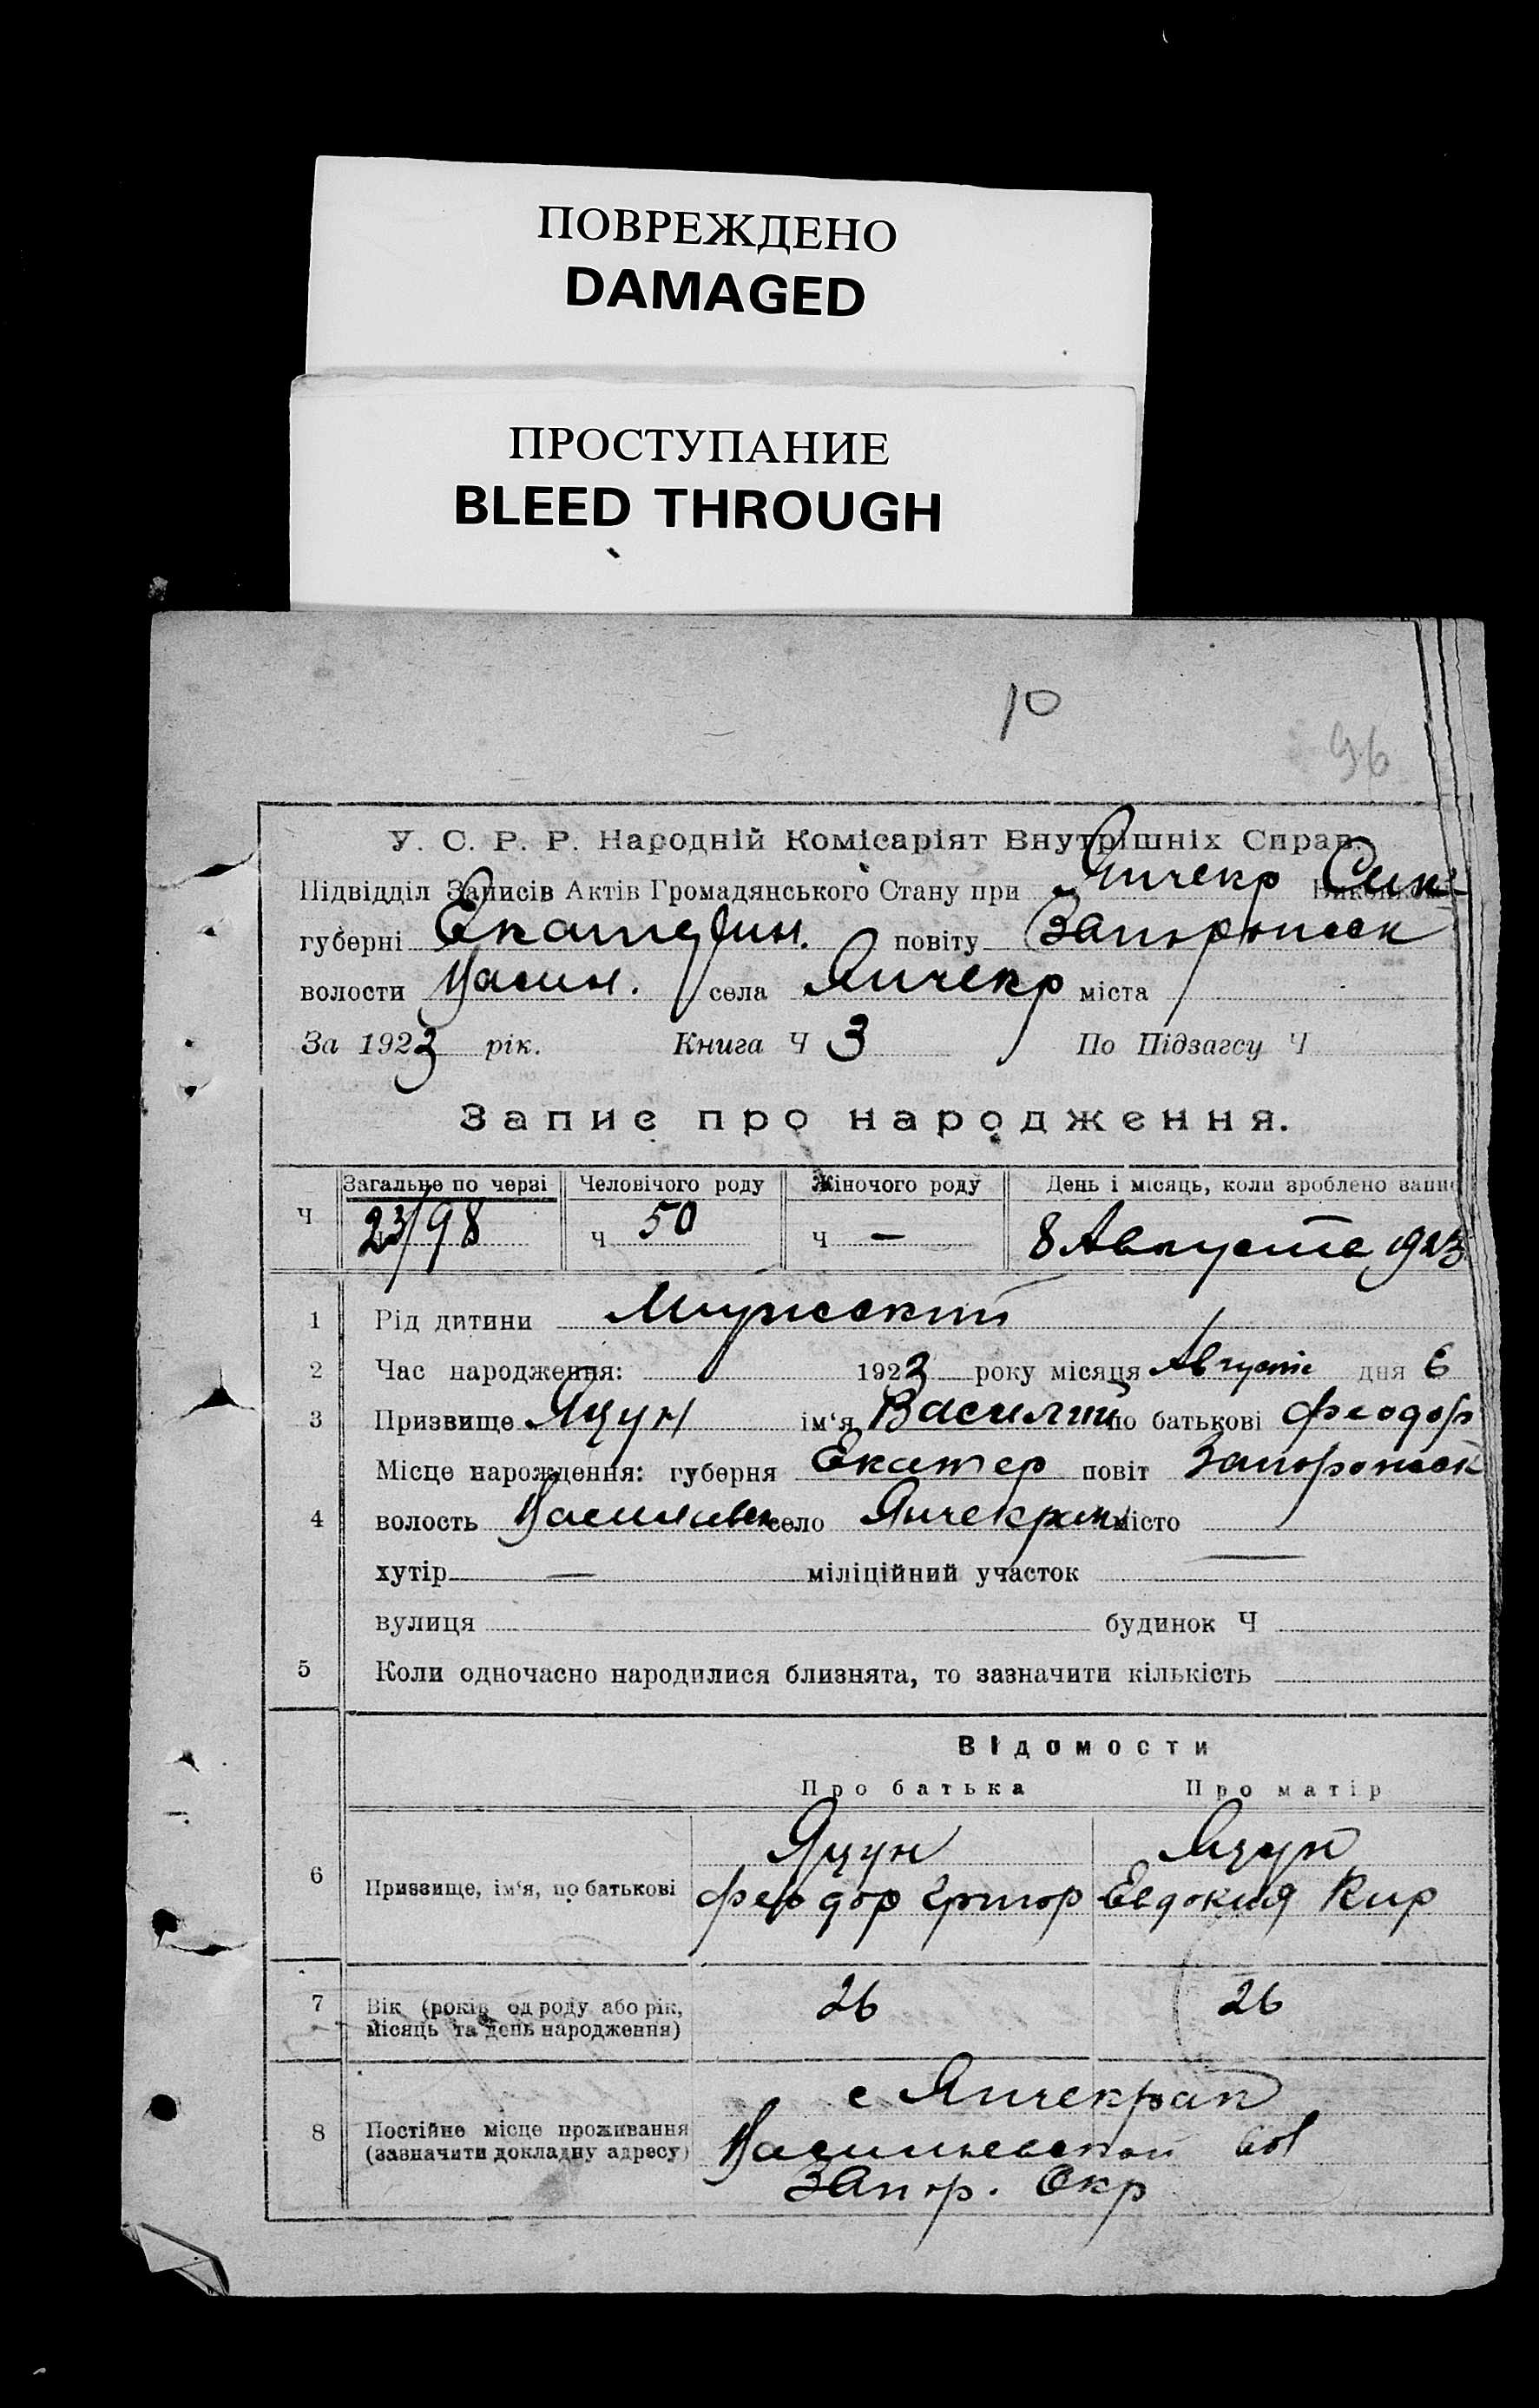 ПОВРЕЖДЕНО
DAMAGED
ПРОСТУПАНИЕ
BLEED THROUGH
10
96
У. С. Р. Р. Народній Комісаріят Внутрішніх Справ.
Підвідділ Записів Актів Громадянського Стану при Янчекр Сель
губерні Екатерин. повіту Запорожск
волости Васил. села Янчекр міста
За 1923 рік. Книга Ч 3 По Підзагсу Ч
Запис про народження.
Загальне по черзі Человічого роду Жіночого роду День і місяць, коли зроблено запис
Ч 23/98 Ч 50 Ч — 8 Августа 1923
1 Рід дитини Мужеский
2 Час народження: 1923 року місяця Августа дня 6
3 Призвище Яцун ім'я Василий по батькові Феодор
Місце нарождення: губерня Екатер повіт Запорожск
4 волость Васильевск село Янчекрак місто
хутір — міліційний участок —
вулиця будинок Ч
5 Коли одночасно народилися близнята, то зазначити кількість
Відомости
Про батька Про матір
Яцун Яцун
6 Призвище, ім'я, по батькові Феодор Григор Евдокия Кир
7 Вік (років од роду або рік, 26 26
місяць та день народження)
с Янчекрак
8 Постійне місце проживання
(зазначити докладну адресу) Васильевской вол
Запор. Окр